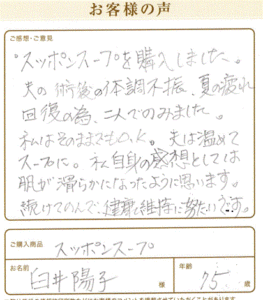 お客様の声
ご感想・ご意見
スッポンスープを購入しました。
夫の術後の体調不振、夏の疲れ
回復の為、二人でのみました。
私はそのままでもO.K. 夫は温めて
スープに。私自身の感想としては
肌が滑らかになったように思います。
続けてのんで、健康と維持に努めたいです。
ご購入商品 スッポンスープ
お名前 臼井陽子 様 年齢 75 歳